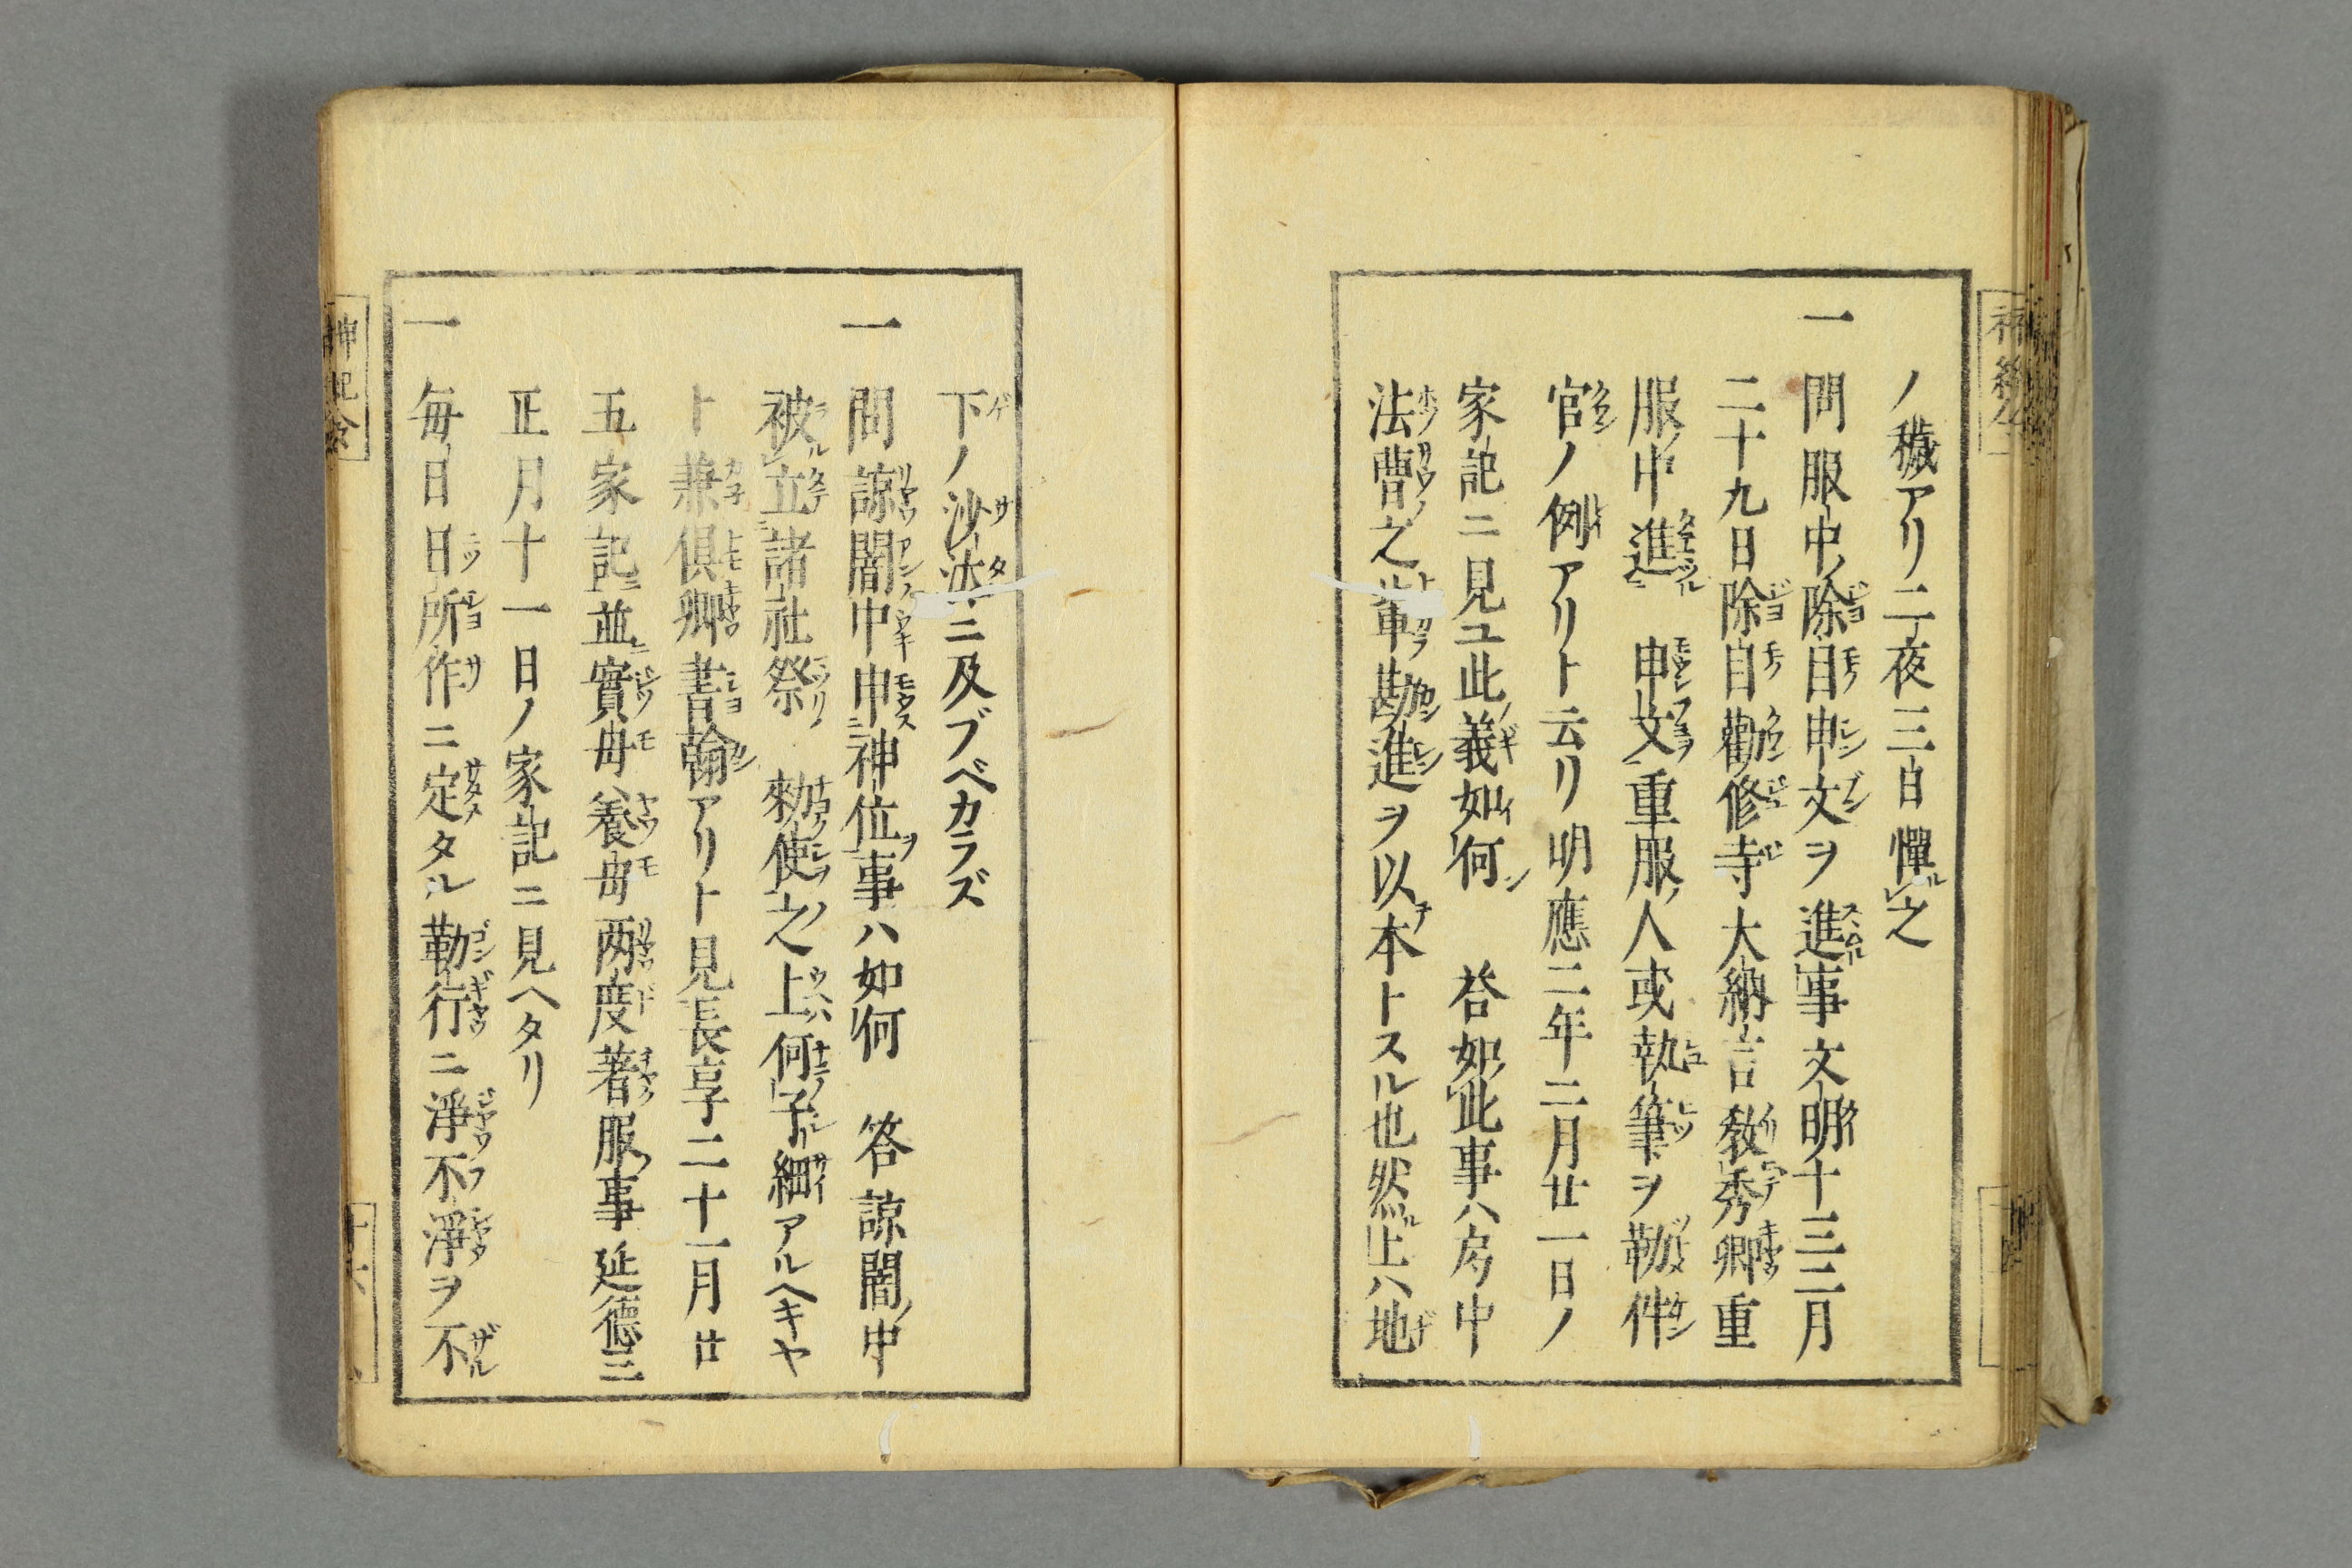 ノ穢アリ二夜三日憚之
一 問服中除目申文ヲ進事文明十三二月
二十九日除目勸修寺大納言敎秀卿重
服中進 申文重服人或執筆ヲ勒件
官ノ例アリト云リ明應二年二月廿一日ノ
家記ニ見ユ此義如何 答如此事ハ房中
法曹之軍勘進ヲ以本トスル也然上ハ地
下ノ沙汰ニ及ブベカラズ
一 問諒闇中申神位事ハ如何 答諒闇中
被立諸社祭 勅使之上何子細アルヘキヤ
ト兼倶卿書翰アリト見長享二十一月廿
五家記並實母養母两度著服事延德三
正月十一日ノ家記ニ見ヘタリ
一 毎日日所作ニ定タル勤行ニ淨不淨ヲ不